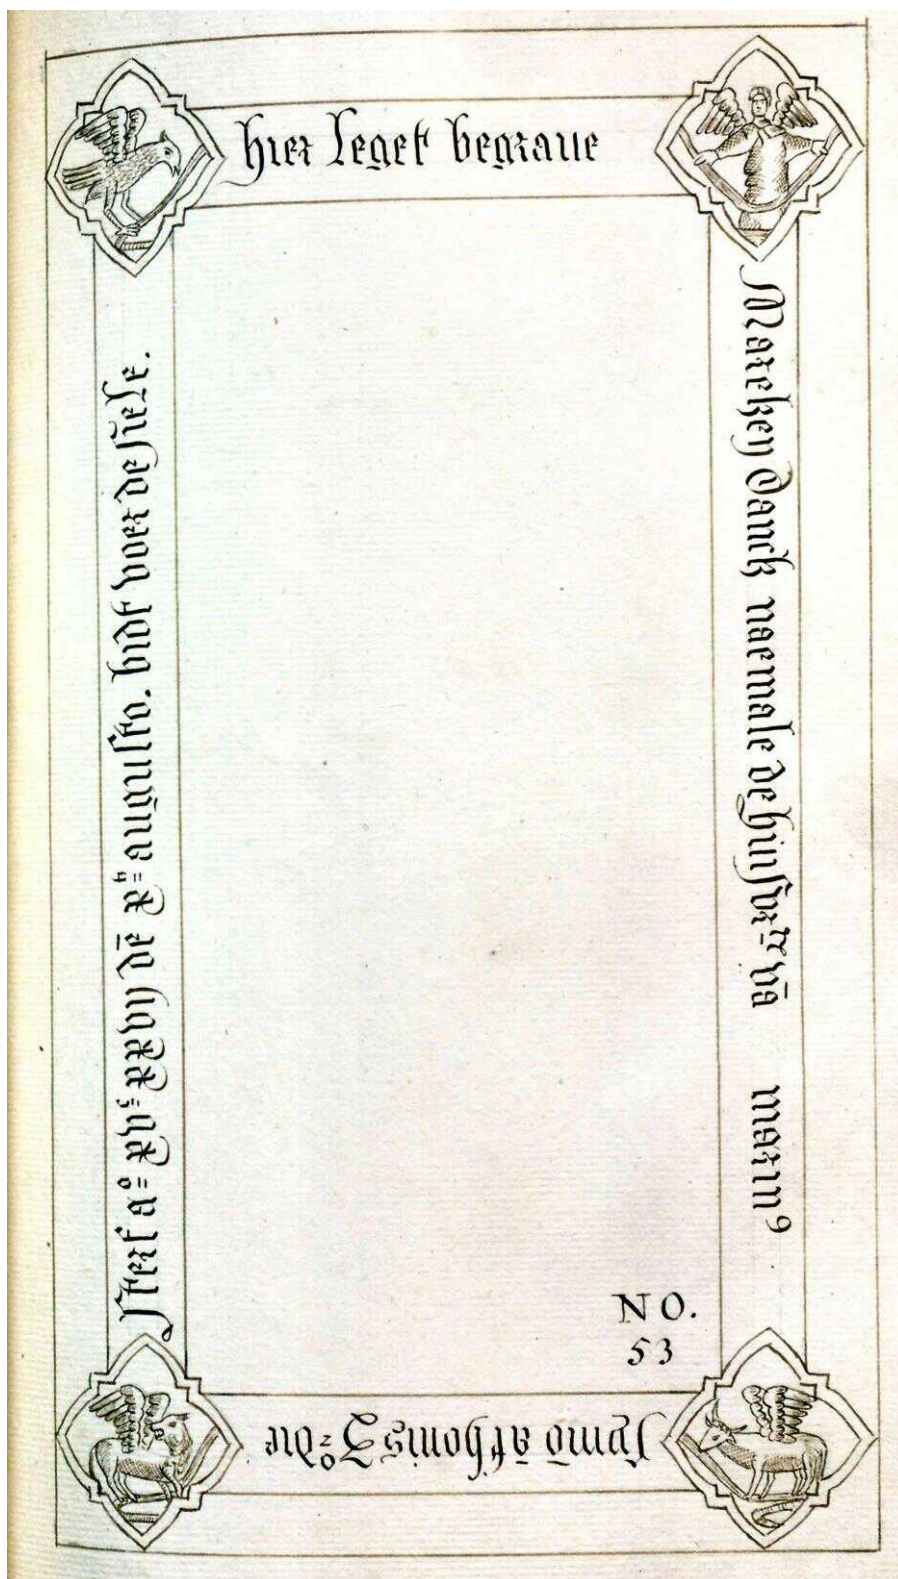 hier leget begraue
Mareken Danck naemale de vā marin⁹
Symō āthonis Zº die
sterf aº xvᶜ xxvij dē augusto. bidt voer de siele.
NO.
53